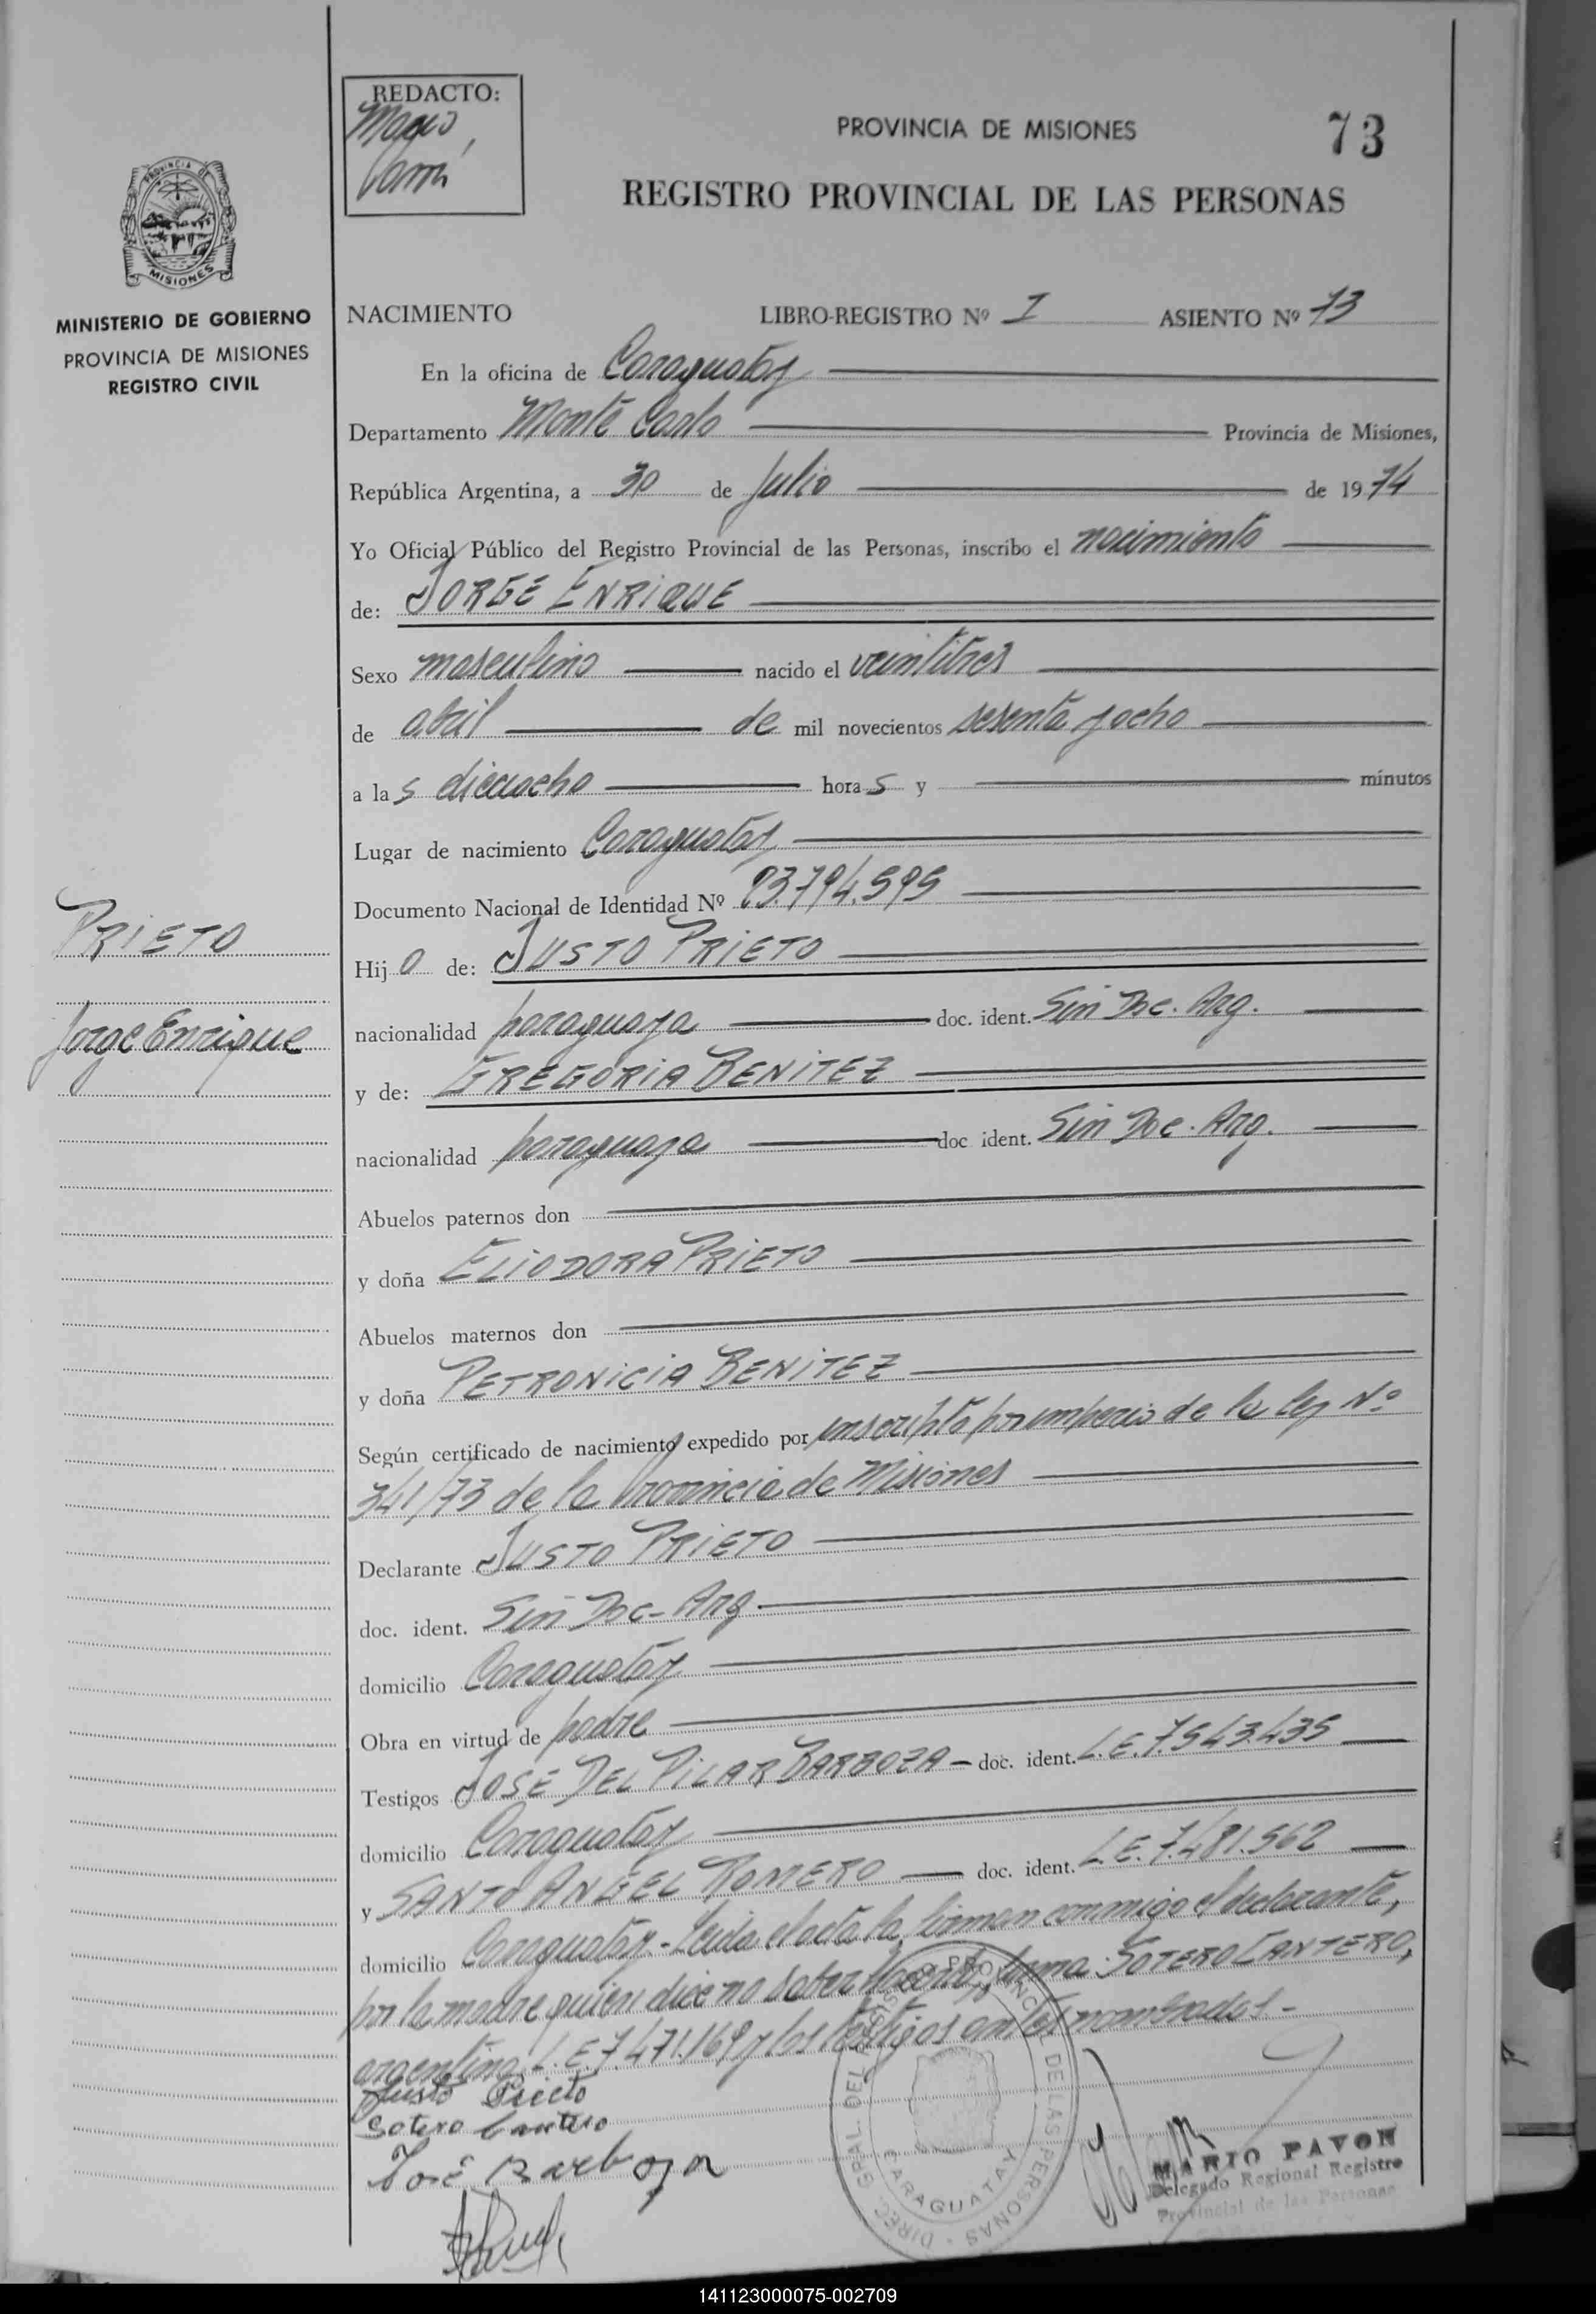 REDACTO:
Mario
PROVINCIA DE MISIONES
73
REGISTRO PROVINCIAL DE LAS PERSONAS
PROVINCIA DE
MISIONES
MINISTERIO DE GOBIERNO
PROVINCIA DE MISIONES
REGISTRO CIVIL
NACIMIENTO LIBRO-REGISTRO Nº I ASIENTO Nº 73
En la oficina de Caraguatay
Departamento Monte Carlo Provincia de Misiones,
República Argentina, a 30 de Julio de 1974
Yo Oficial Público del Registro Provincial de las Personas, inscribo el nacimiento
de: JORGE ENRIQUE
Sexo masculino nacido el veintitres
de abril de mil novecientos sesenta y ocho
a las dieciocho horas y minutos
Lugar de nacimiento Caraguatay
Documento Nacional de Identidad Nº 23.794.595
PRIETO
Jorge Enrique
Hijo de: JUSTO PRIETO
nacionalidad paraguaya doc. ident. Sin Doc. Arg.
y de: GREGORIA BENITEZ
nacionalidad paraguaya doc ident. Sin Doc. Arg.
Abuelos paternos don
y doña ELIODORA PRIETO
Abuelos maternos don
y doña PETRONICIA BENITEZ
Según certificado de nacimiento expedido por inscripto por imperio de la ley Nº
341/73 de la Provincia de Misiones
Declarante JUSTO PRIETO
doc. ident. Sin Doc- Arg.
domicilio Caraguatay
Obra en virtud de padre
Testigos JOSE DEL PILAR BARBOZA - doc. ident. L.E.7.543.435
domicilio Caraguatay
y SANTO ANGEL ROMERO doc. ident. L.E.7.481.562
domicilio Caraguatay - Leida el acta la firman conmigo el declarante,
por la madre quien dice no saber hacerlo, firma: SOTERO CANTERO,
argentino L.E.7.471.169 y los testigos antes nombrados -
Justo Prieto
Sotero Cantero
José Barboza
DIREC. GRAL. DEL REGISTRO PROVINCIAL DE LAS PERSONAS
CARAGUATAY
MARIO PAVON
Delegado Regional Registro
Provincial de las Personas
141123000075-002709